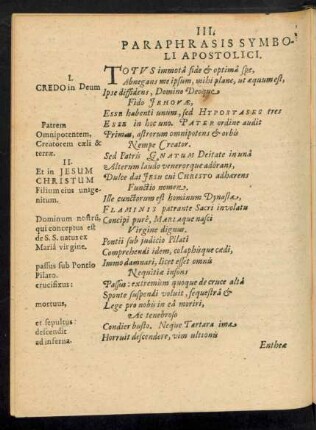 III.
PARAPHRASIS SYMBO-
LI APOSTOLICI.
I.
CREDO in Deum
TOTVS immotâ fide & optimâ spe,
Abnegans me ipsum, mihi plane, ut æquum est,
Ipse diffidens, Domino Deoque
Fido JEHOVÆ,
ESSE habenti unum, sed HYPOSTASES tres
Patrem
ESSE in hoc uno. PATER ordine audit
Omnipotentem,
Primus, astrorum omnipotens & orbis
Creatorem cæli &
Nempe Creator.
terræ.
Sed Patris GNATUM Deitate in unâ
II.
Alterum laudo venerorque adorans,
Et in JESUM
Dulce dat JESU cui CHRISTO adhærens
CHRISTUM
Functio nomen.
Filium ejus unige-
nitum,
Ille cunctorum est hominum Dynastes,
Dominum nostrũ,
FLAMINIS patrante Sacri involatu
qui conceptus est
Concipi purè, MARIAque nasci
de S. S. natus ex
Virgine dignus.
Mariâ virgine,
Pontii sub judicio Pilati
Comprehendi idem, colaphisque cædi,
passus sub Pontio
Immo damnari, licet esset omnis
Pilato.
Nequitiæ insons
crucifixus:
Passus: extremùm quoque de cruce altâ
Sponte suspendi voluit, sequestrâ &
mortuus,
Lege pro nobis in eâ moriri,
Ac tenebroso
et sepultus:
Condier busto. Neque Tartara imæ
descendit
Horruit descendere, vim ultionis
ad inferna.
Entheæ